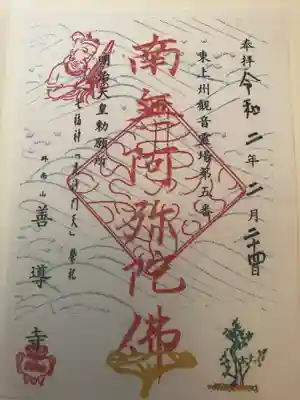 奉拝 令和二年二月二十四日
東上州観音霊場第五番
南無阿弥陀佛
明治天皇勅願所
七福神「毘沙門天」
終南山 善導寺